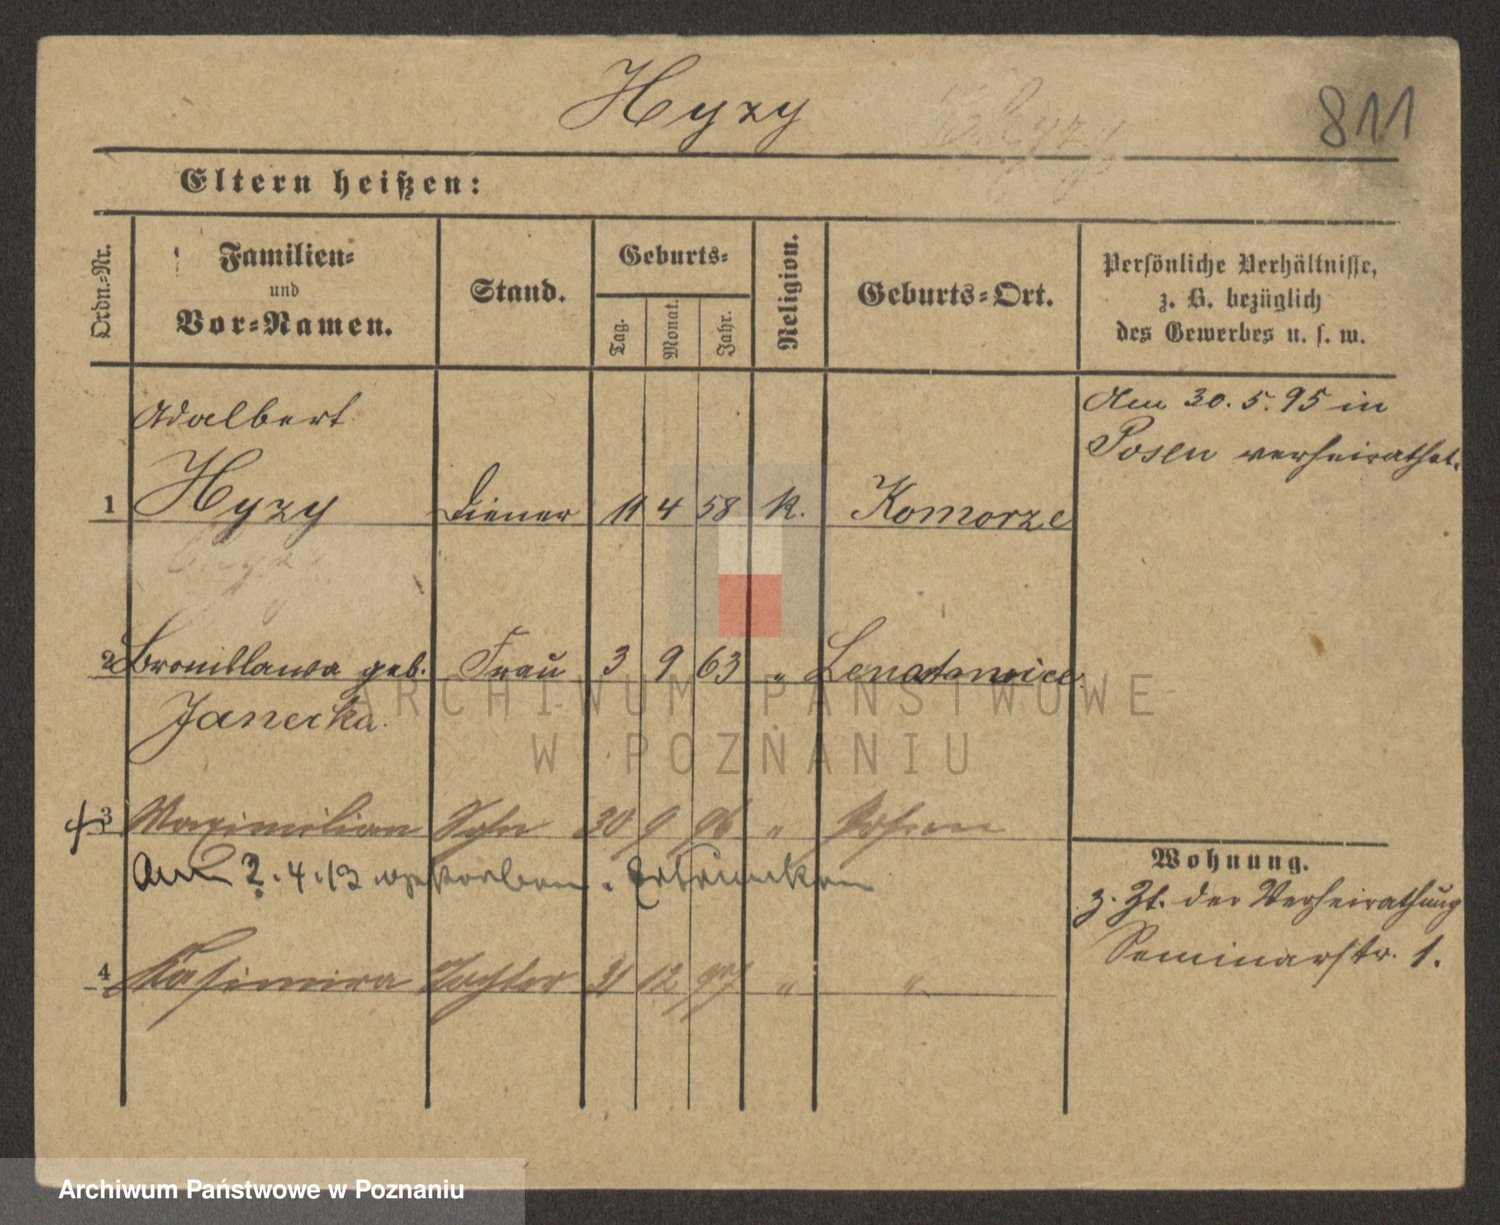 Hyzy 811
Eltern heißen:
Ordn.-Nr.
Familien-
und
Vor-Namen.
Stand.
Geburts-
Tag.
Monat.
Jahr.
Religion.
Geburts-Ort.
Persönliche Verhältnisse,
z. B. bezüglich
des Gewerbes u. s. w.
Am 30. 5. 95 in
Posen verheirathet.
Adalbert
1 Hyzy Diener 11 4 58 k. Komorze
2 Bronislawa geb. Frau 3 9 63 "
Janecka.
3 Maximilian Sohn 30 9 96 " Posen
Am 2. 4. 13 verstorben. Ertrunken
4 Kasimira Tochter 31 12 97 " "
Wohnung.
z. Zt. der Verheirathung
Seminarstr. 1.
ARCHIWUM PAŃSTWOWE
W POZNANIU
Archiwum Państwowe w Poznaniu